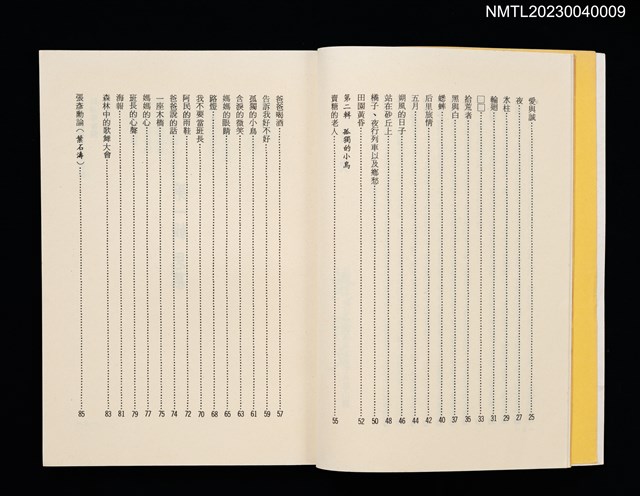 NMTL20230040009
愛與誠 25
夜 27
水柱 29
輪廻 31
□□ 33
拾荒者 35
黑與白 37
蟋蟀 40
后里旅情 42
五月 44
朔風的日子 46
站在砂丘上 48
橘子、夜行列車以及鄉愁 50
田園黃昏 52
第二輯 孤獨的小鳥
賣糖的老人 55
爸爸喝酒 57
告訴我好不好 59
孤獨的小鳥 61
含淚的微笑 63
媽媽的眼睛 65
路燈 68
我不要當班長 70
阿民的雨鞋 72
爸爸說的話 74
一座木橋 75
媽媽的心 77
班長的心聲 79
海報 81
森林中的歌舞大會 83
張彥勳論(葉石濤) 85